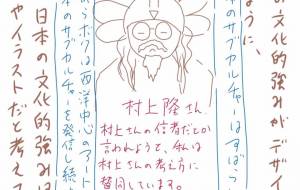 の文化的強みがデザイ
ように、
本のサブカルチャーはすばら
村上隆さん
村上さんの信者だとか
言われようと、私は
村上さんの考え方に
賛同しています。
らボクは西洋中心のアート
本のサブカルチャーを発信し続
日本の文化的強みは
やイラストだと考え